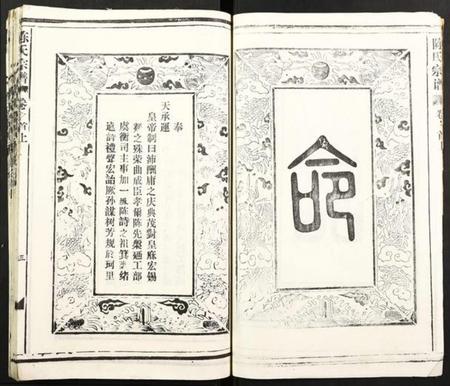 陳氏宗譜
卷首
命
奉
天承運
皇帝制曰沛酬庸之慶典茂對皇庥宏錫
類之殊榮曲成臣孝爾陳先盤迺工部
虞衡司主事加一級陳詩之祖箕裘緒
遠詩禮聲宏詒厥孫謀樹芳規於珂里
陳氏宗譜
卷首上
三